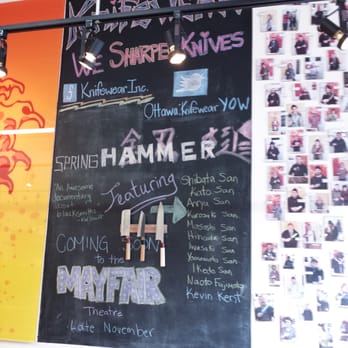 Knifewear
We Sharpen Knives
Knifewear Inc.
Ottawa.Knifewear YOW
SPRING HAMMER
"An Awesome
documentary
about
blacksmiths"
Featuring
Shibata San
Kato San
Anryu San
Kurosaki San
Masashi San
Hinoura San
Iwasaki San
Yoshimoto San
Ikeda San
Naoto Fujiwara
Kevin Kent
COMING SOON
to the
MAYFAIR
Theatre
Late November